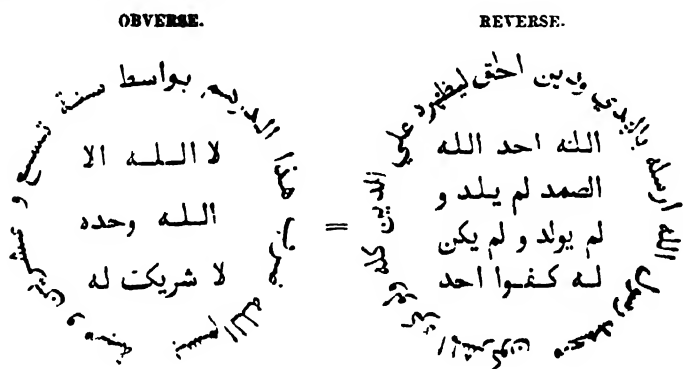 OBVERSE.
بسم الله ضرب هذا الدرهم بواسط سنة تسع و عشرين و مية
لا اللـه الا
اللـه وحده
لا شريكت له
=
REVERSE.
محمد رسول الله ارسله بالهدي ودين احق ليظهره علي الدين كله ولو كره المشركون
الله احد الله
الصمد لم يلد و
لم يولد و لم يكن
له كفوا احد